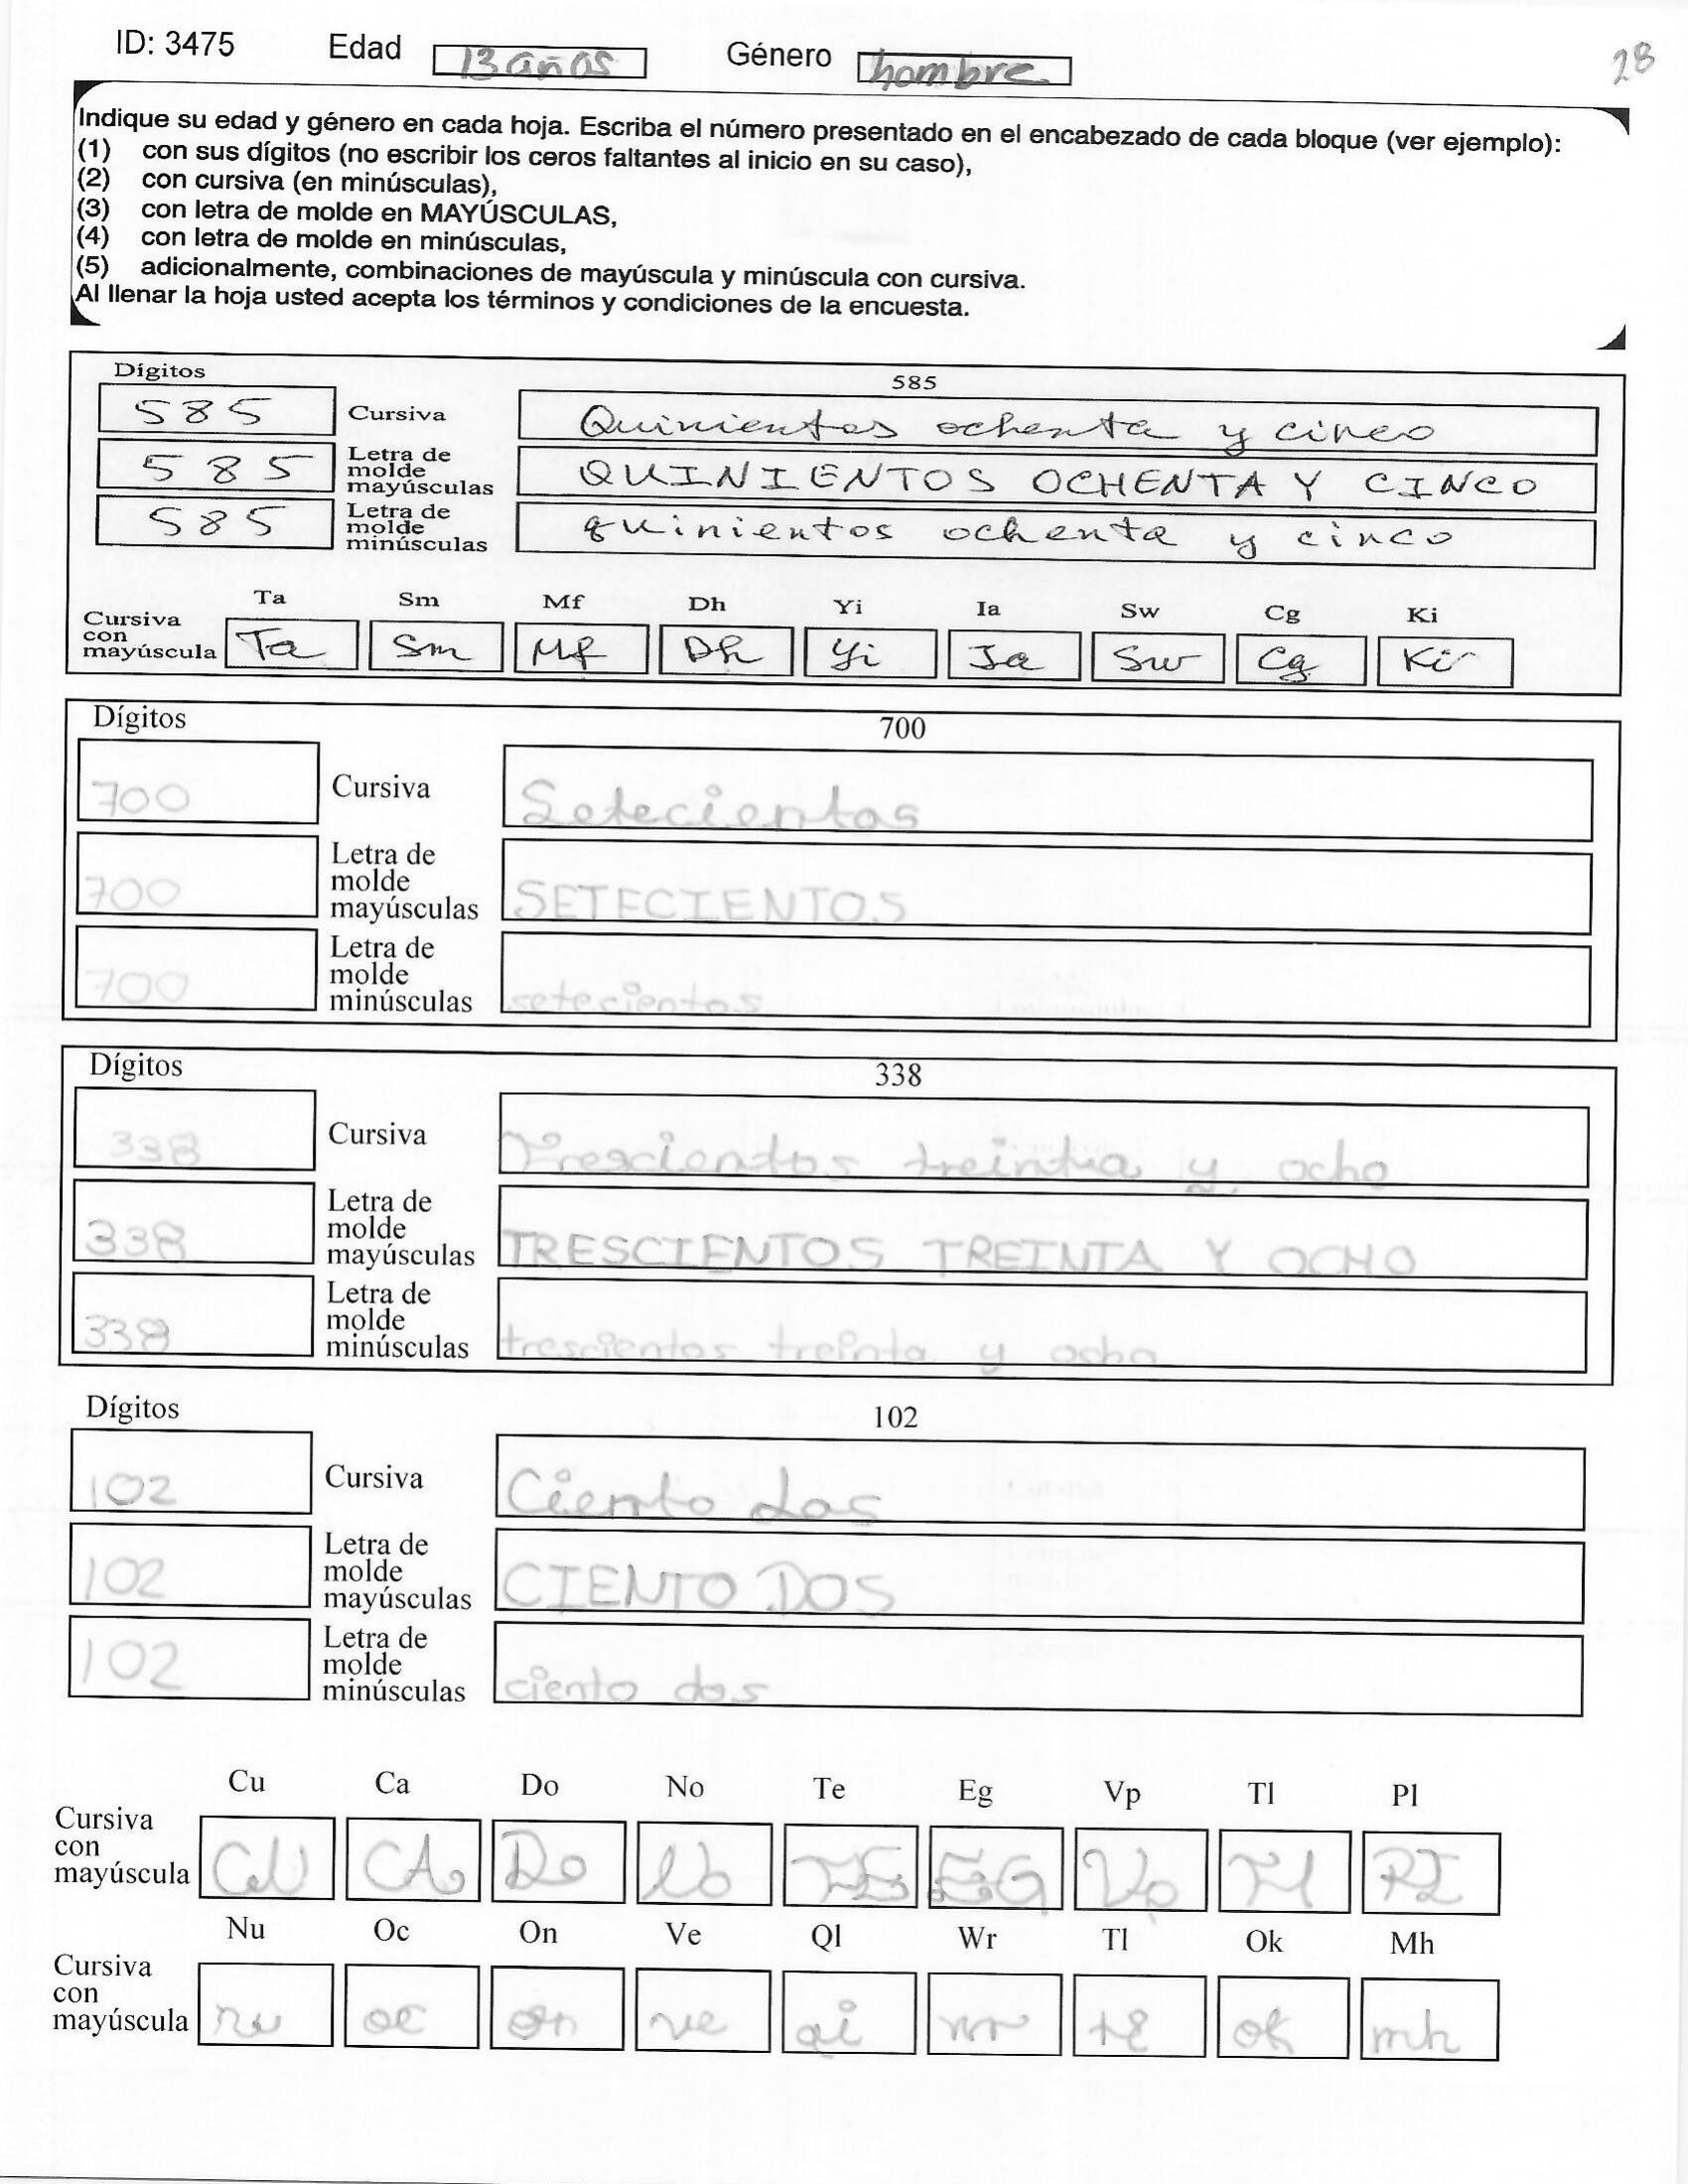 ID: 3475 Edad 13 años Género hombre 28
Indique su edad y género en cada hoja. Escriba el número presentado en el encabezado de cada bloque (ver ejemplo):
(1) con sus dígitos (no escribir los ceros faltantes al inicio en su caso),
(2) con cursiva (en minúsculas),
(3) con letra de molde en MAYÚSCULAS,
(4) con letra de molde en minúsculas,
(5) adicionalmente, combinaciones de mayúscula y minúscula con cursiva.
Al llenar la hoja usted acepta los términos y condiciones de la encuesta.
Dígitos 585
585 Cursiva Quinientos ochenta y cinco
585 Letra de molde mayúsculas QUINIENTOS OCHENTA Y CINCO
585 Letra de molde minúsculas quinientos ochenta y cinco
Ta Sm Mf Dh Yi Ia Sw Cg Ki
Cursiva con mayúscula Ta Sm Mf Dh Yi Ia Sw Cg Ki
Dígitos 700
700 Cursiva Setecientos
700 Letra de molde mayúsculas SETECIENTOS
700 Letra de molde minúsculas setecientos
Dígitos 338
338 Cursiva Trescientos treinta y ocho
338 Letra de molde mayúsculas TRESCIENTOS TREINTA Y OCHO
338 Letra de molde minúsculas trescientos treinta y ocho
Dígitos 102
102 Cursiva Ciento dos
102 Letra de molde mayúsculas CIENTO DOS
102 Letra de molde minúsculas ciento dos
Cu Ca Do No Te Eg Vp Tl Pl
Cursiva con mayúscula CU CA Do No TE EG Vp Tl PI
Nu Oc On Ve Ql Wr Tl Ok Mh
Cursiva con mayúscula nu oc on ve qi wr tl ok mh